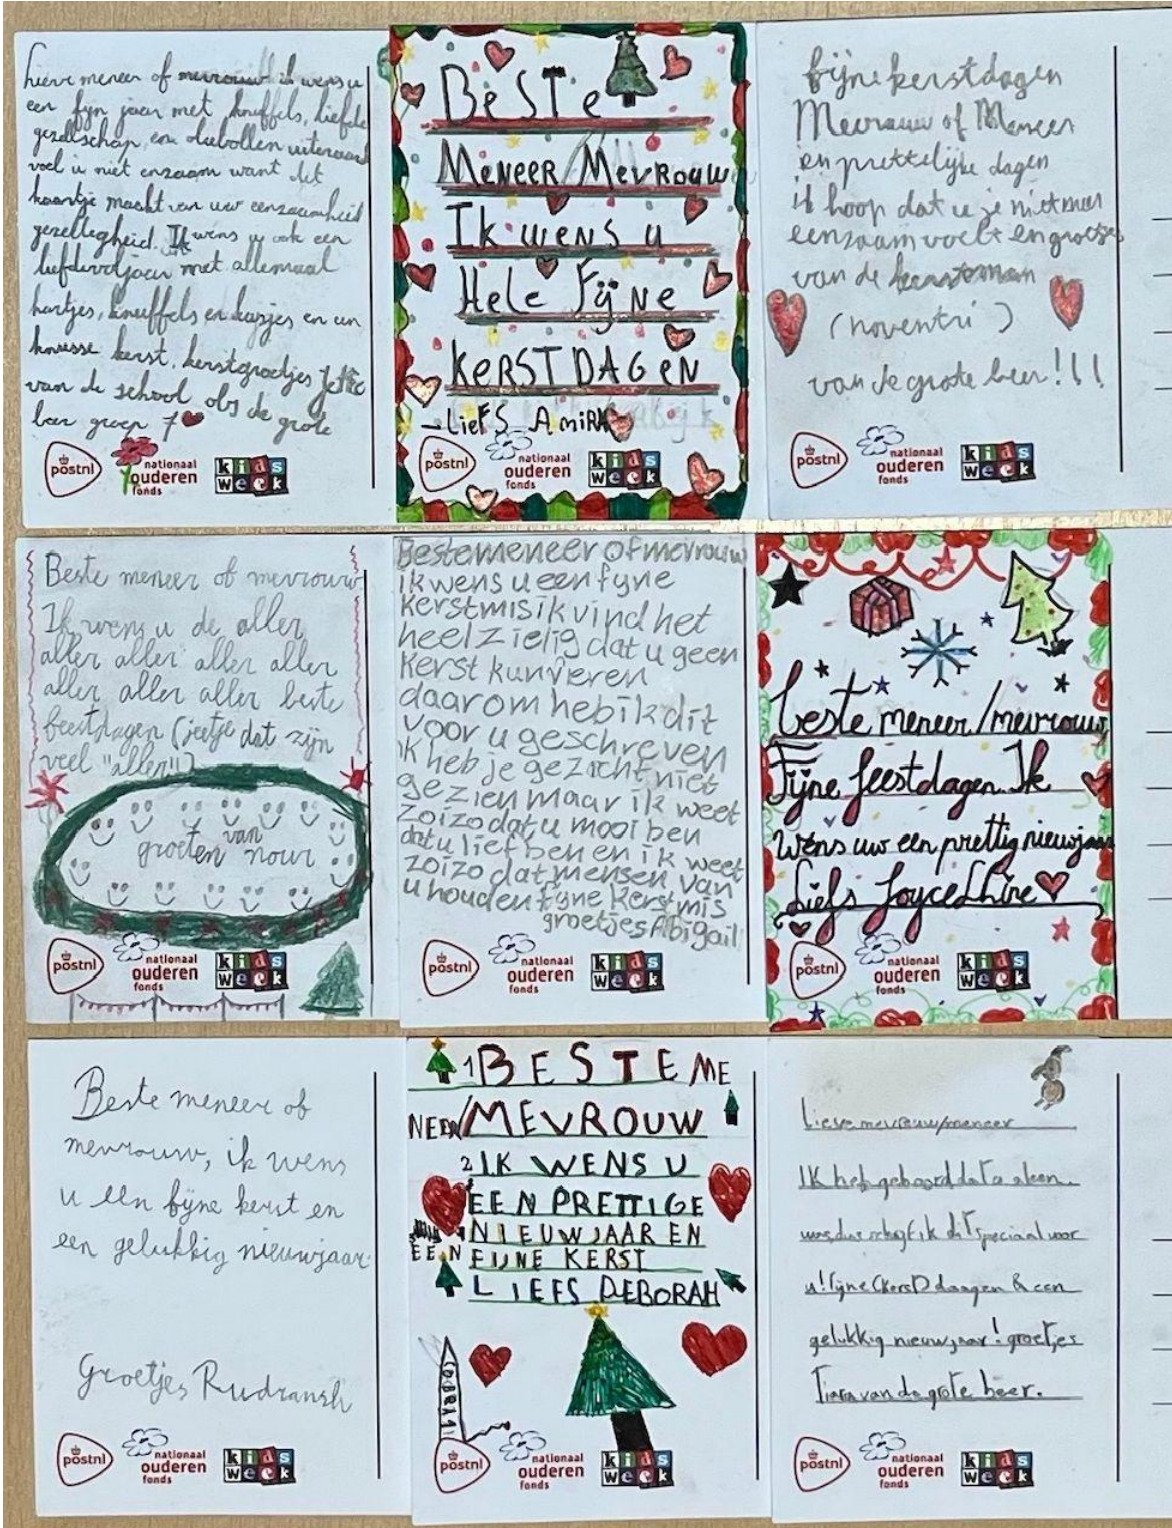 lieve meneer of mevrouw ik wens u
een fijn jaar met knuffels, liefde
gezelschap, en oliebollen uiteraard
voel u niet enzaam want dit
kaartje maakt van uw eenzaamheid
gezelligheid. Ik wens u ook een
liefdevol jaar met allemaal
hartjes, knuffels en kusjes en een
knusse kerst, kerstgroetjes
van de school obs de grote
beer groep 7
postnl
nationaal
ouderen
fonds
kids
week
BeSTe
Meneer Mevrouw
Ik wens u
Hele Fijne
KeRSTDAGeN
- LieFS AmiRA
postnl
nationaal
ouderen
fonds
kids
week
fijne kerstdagen
Mevrouw of Meneer
en prettelijke dagen
ik hoop dat u je niet meer
eenzaam voelt en groetjes
van de kerstman
(noventri)
van de grote beer!!!
postnl
nationaal
ouderen
fonds
kids
week
Beste meneer of mevrouw
Ik wens u de aller
aller aller aller aller
aller aller aller beste
feestdagen (jeetje dat zijn
veel "aller"!)
groeten van nour
postnl
nationaal
ouderen
fonds
kids
week
Beste meneer of mevrouw
ik wens u een fijne
kerstmis ik vind het
heel zielig dat u geen
kerst kun vieren
daarom heb ik dit
voor u geschreven
ik heb je gezicht niet
gezien maar ik weet
zoizo dat u mooi ben
dat u lief ben en ik weet
zoizo dat mensen van
u houden fijne kerstmis
groetjes Abigail
postnl
nationaal
ouderen
fonds
kids
week
beste meneer/mevrouw
Fijne feestdagen. Ik
wens uw een prettig nieuwjaar
Liefs Joyceline
postnl
nationaal
ouderen
fonds
kids
week
Beste meneer of
mevrouw, ik wens
u een fijne kerst en
een gelukkig nieuwjaar
Groetjes Rudransh
postnl
nationaal
ouderen
fonds
kids
week
1 BESTE ME
NEER/MEVROUW
2 IK WENS U
EEN PRETTIGE
NIEUWJAAR EN
EEN FIJNE KERST
LIEFS DEBORAH
COBRA
postnl
nationaal
ouderen
fonds
kids
week
Lieve mevrouw/meneer
Ik heb gehoord dat u aleen
was, dus schrijf ik dit speciaal voor
u! fijne (kerst) daagen & een
gelukkig nieuwjaar! groetjes
Tiara van de grote beer.
postnl
nationaal
ouderen
fonds
kids
week